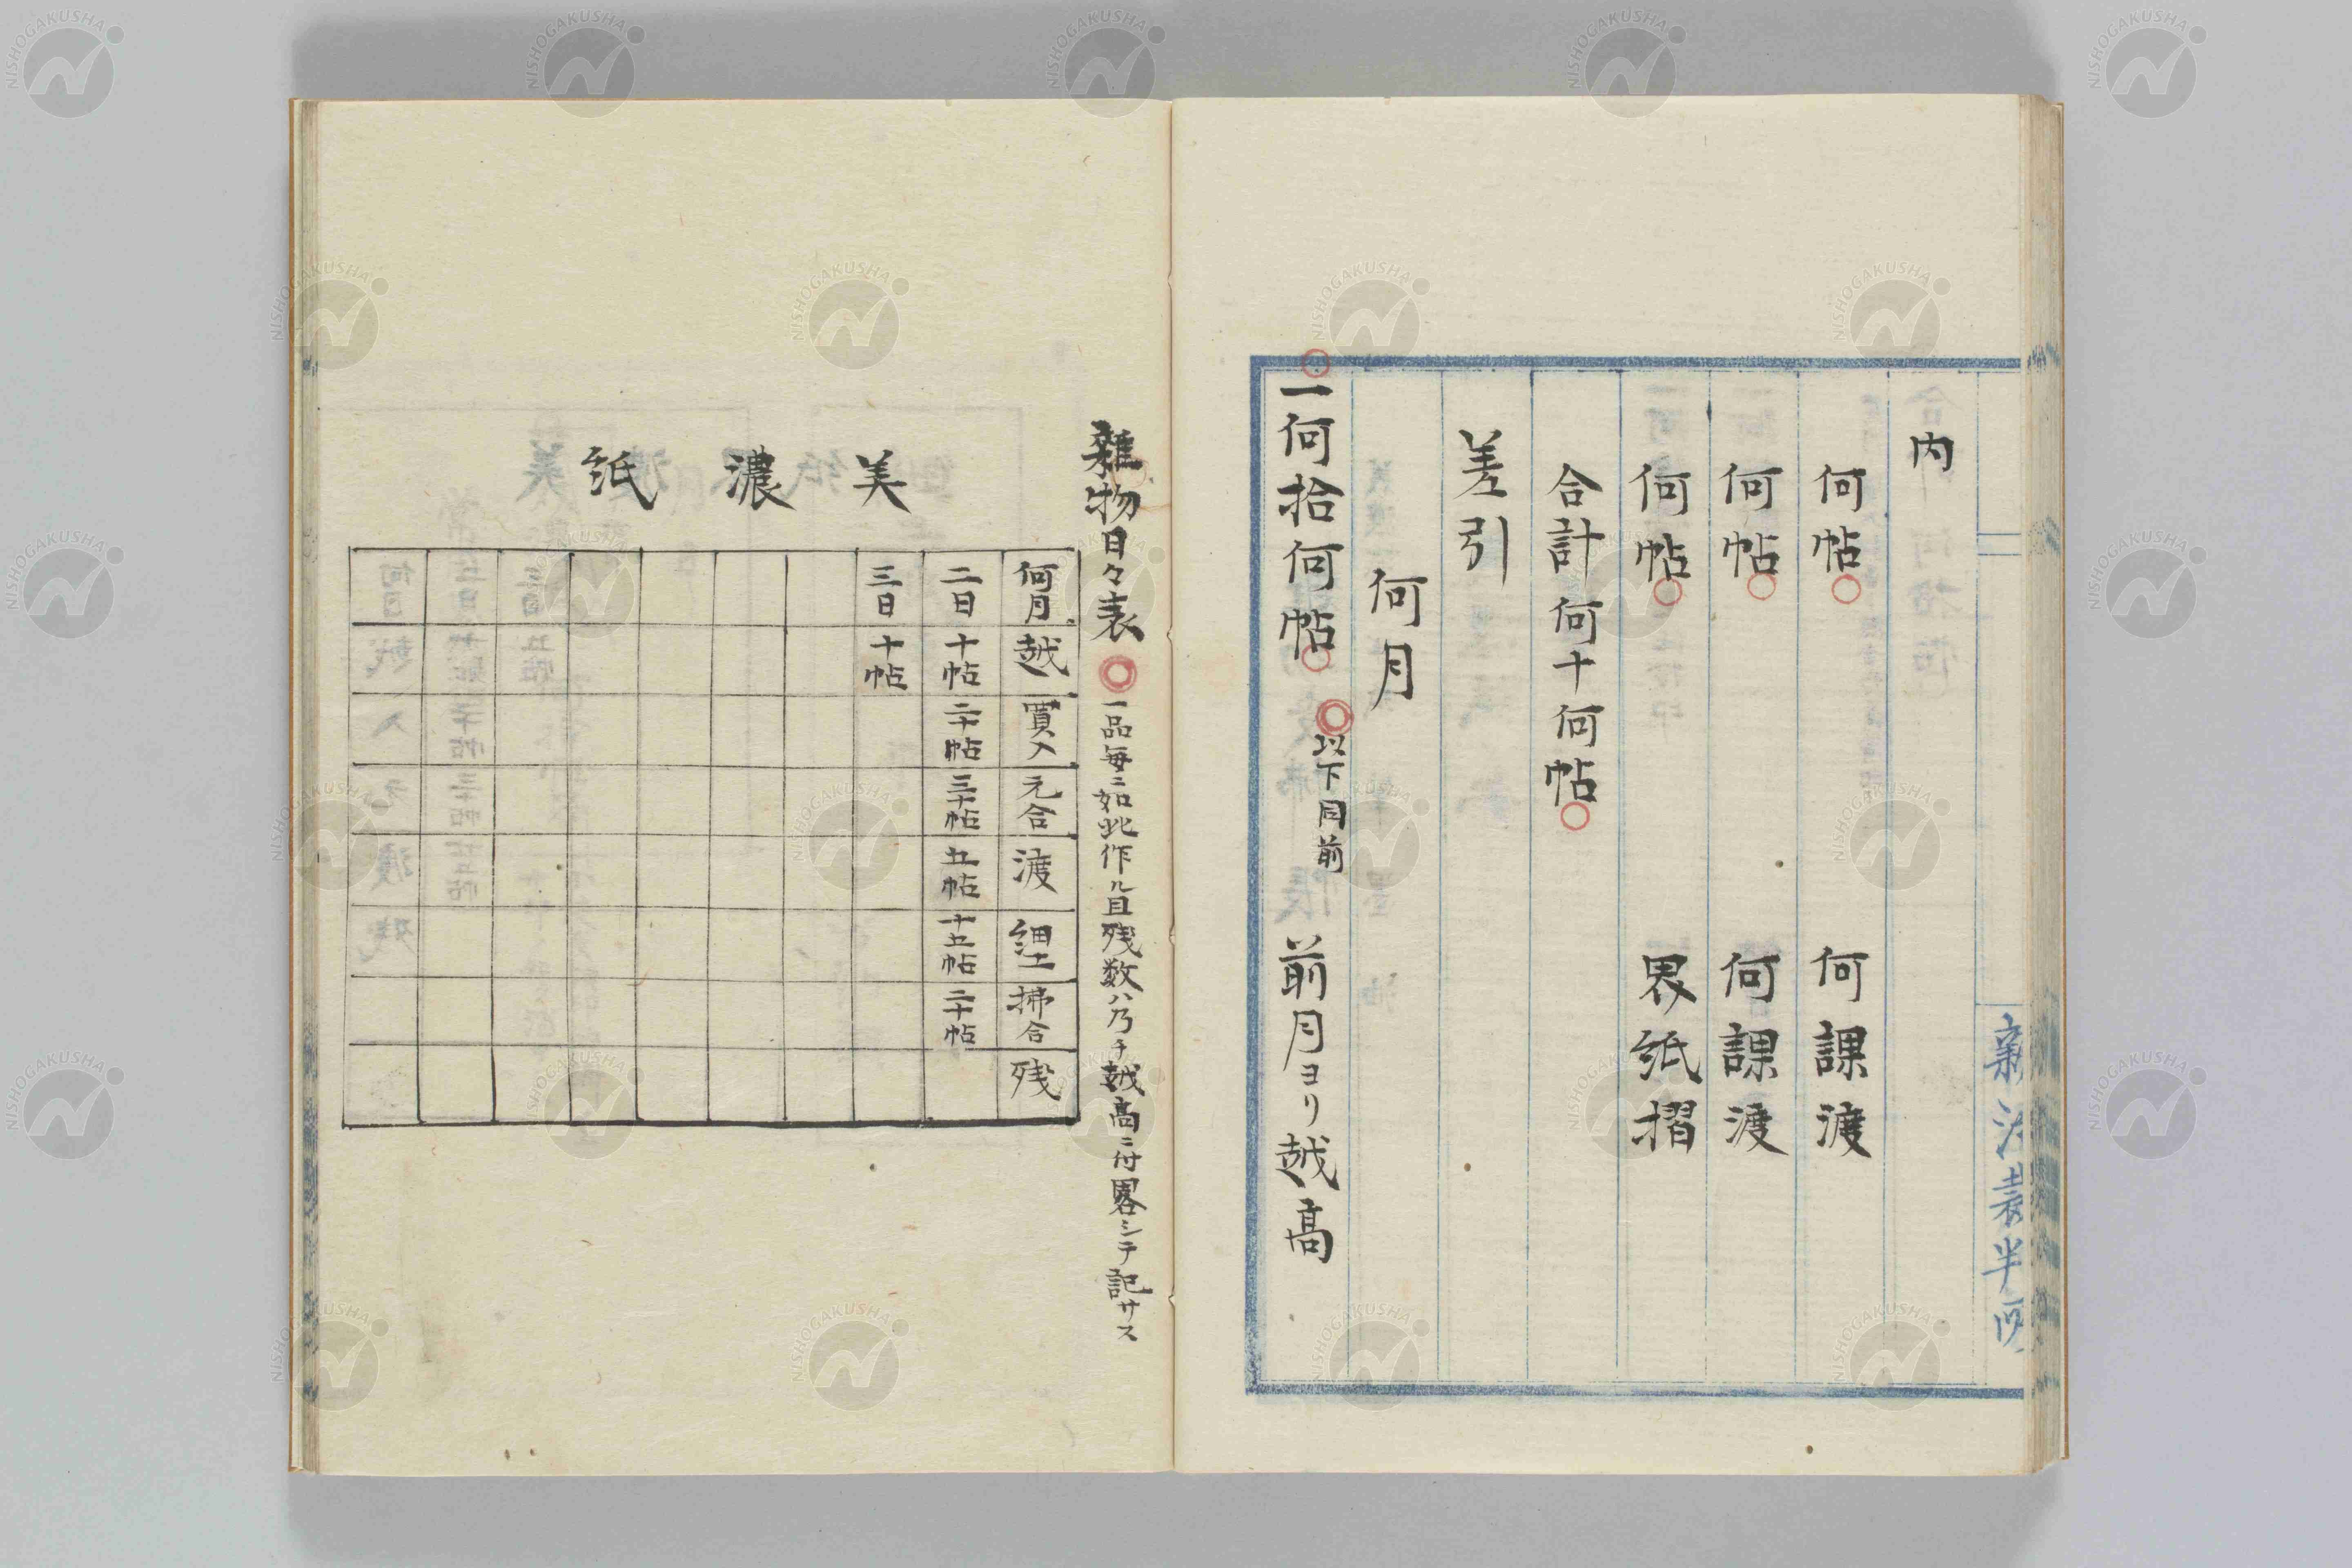 内
何帖 何課渡
何帖 何課渡
何帖 界紙摺
合計何十何帖
差引
何月
一何拾何帖 以下同前 前月ヨリ越高
雜物日々表 一品毎ニ如此作ル且残数ハ乃チ越高ニ付畧シテ記サス
美濃紙
何月 越 買入 元合 渡 細工 拂合 残
二日 十帖 二十帖 三十帖 五帖 十五帖 二十帖
三日 十帖
NISHOGAKUSHA